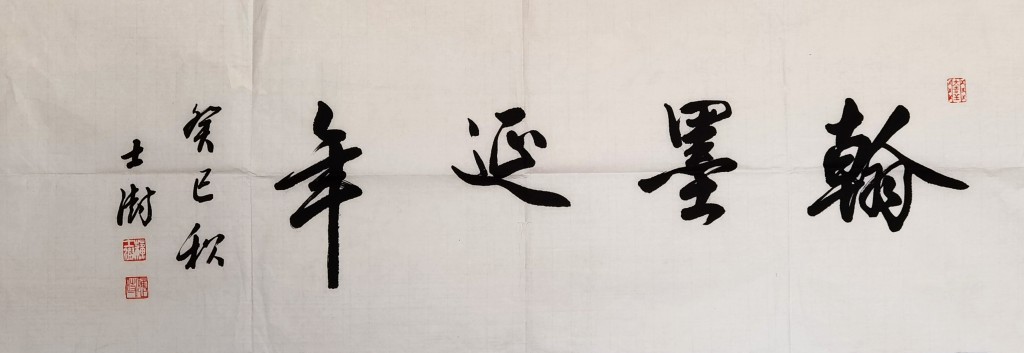 翰墨延年
癸巳秋
士澍